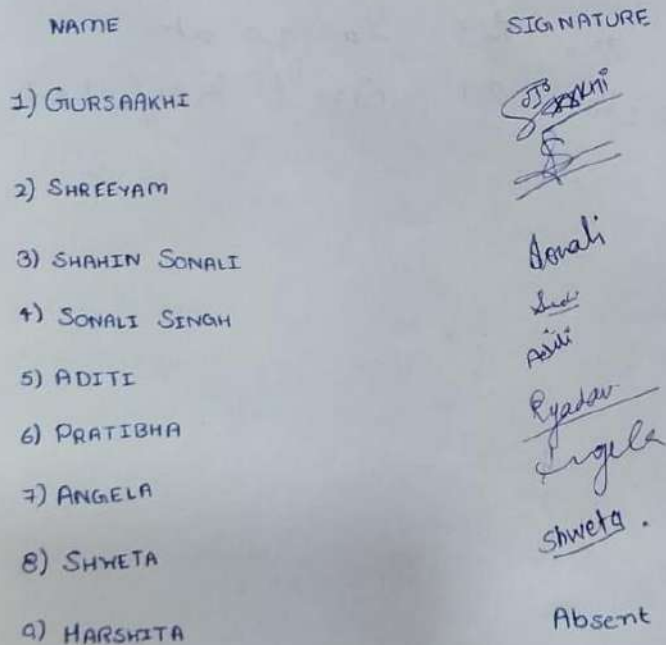 NAME SIGNATURE
1) GURSAAKHI
2) SHREEYAM
3) SHAHIN SONALI Sonali
4) SONALI SINGH
5) ADITI Aditi
6) PRATIBHA Pyadav
7) ANGELA Angela
8) SHWETA Shweta .
9) HARSHITA Absent